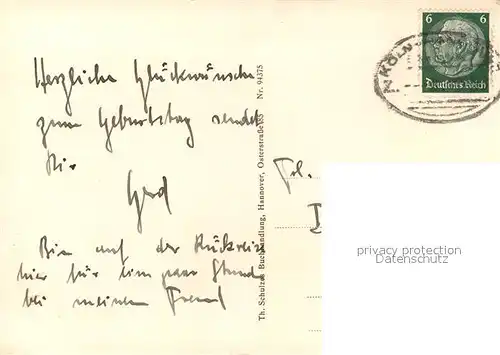 Herzliche Glückwünsche
zum Geburtstag sendet
Dir
Gerd
Bin auf der Rückreise
hier für ein paar Stund
bei meinem Freund
Th. Schulzes Buchhandlung, Hannover, Osterstraße 85 Nr. 94375
6 6
Deutsches Reich
KÖLN
Frl.
privacy protection
Datenschutz